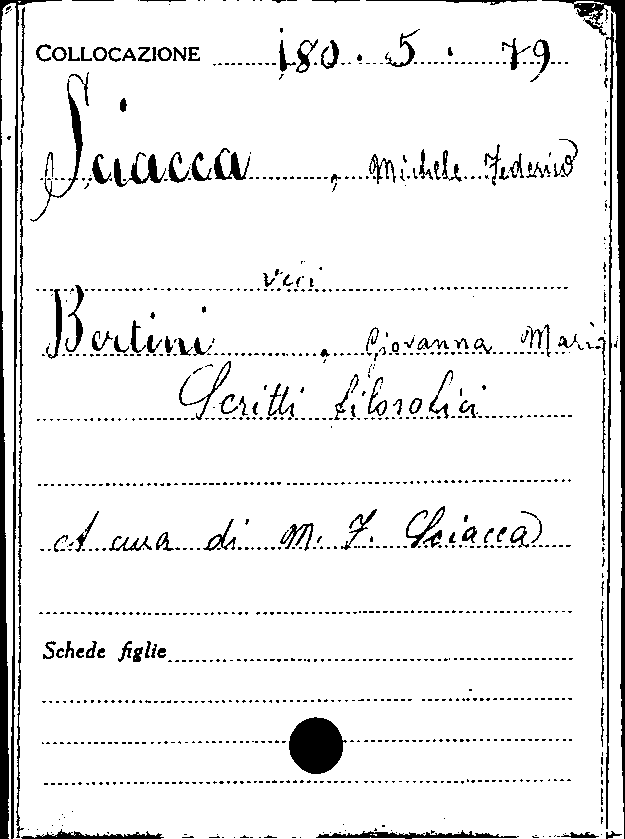 COLLOCAZIONE 180.5.79
Sciacca, Michele Federico
vedi
Bertini, Giovanna Maria
Scritti filosofici
A cura di M. F. Sciacca
Schede figlie